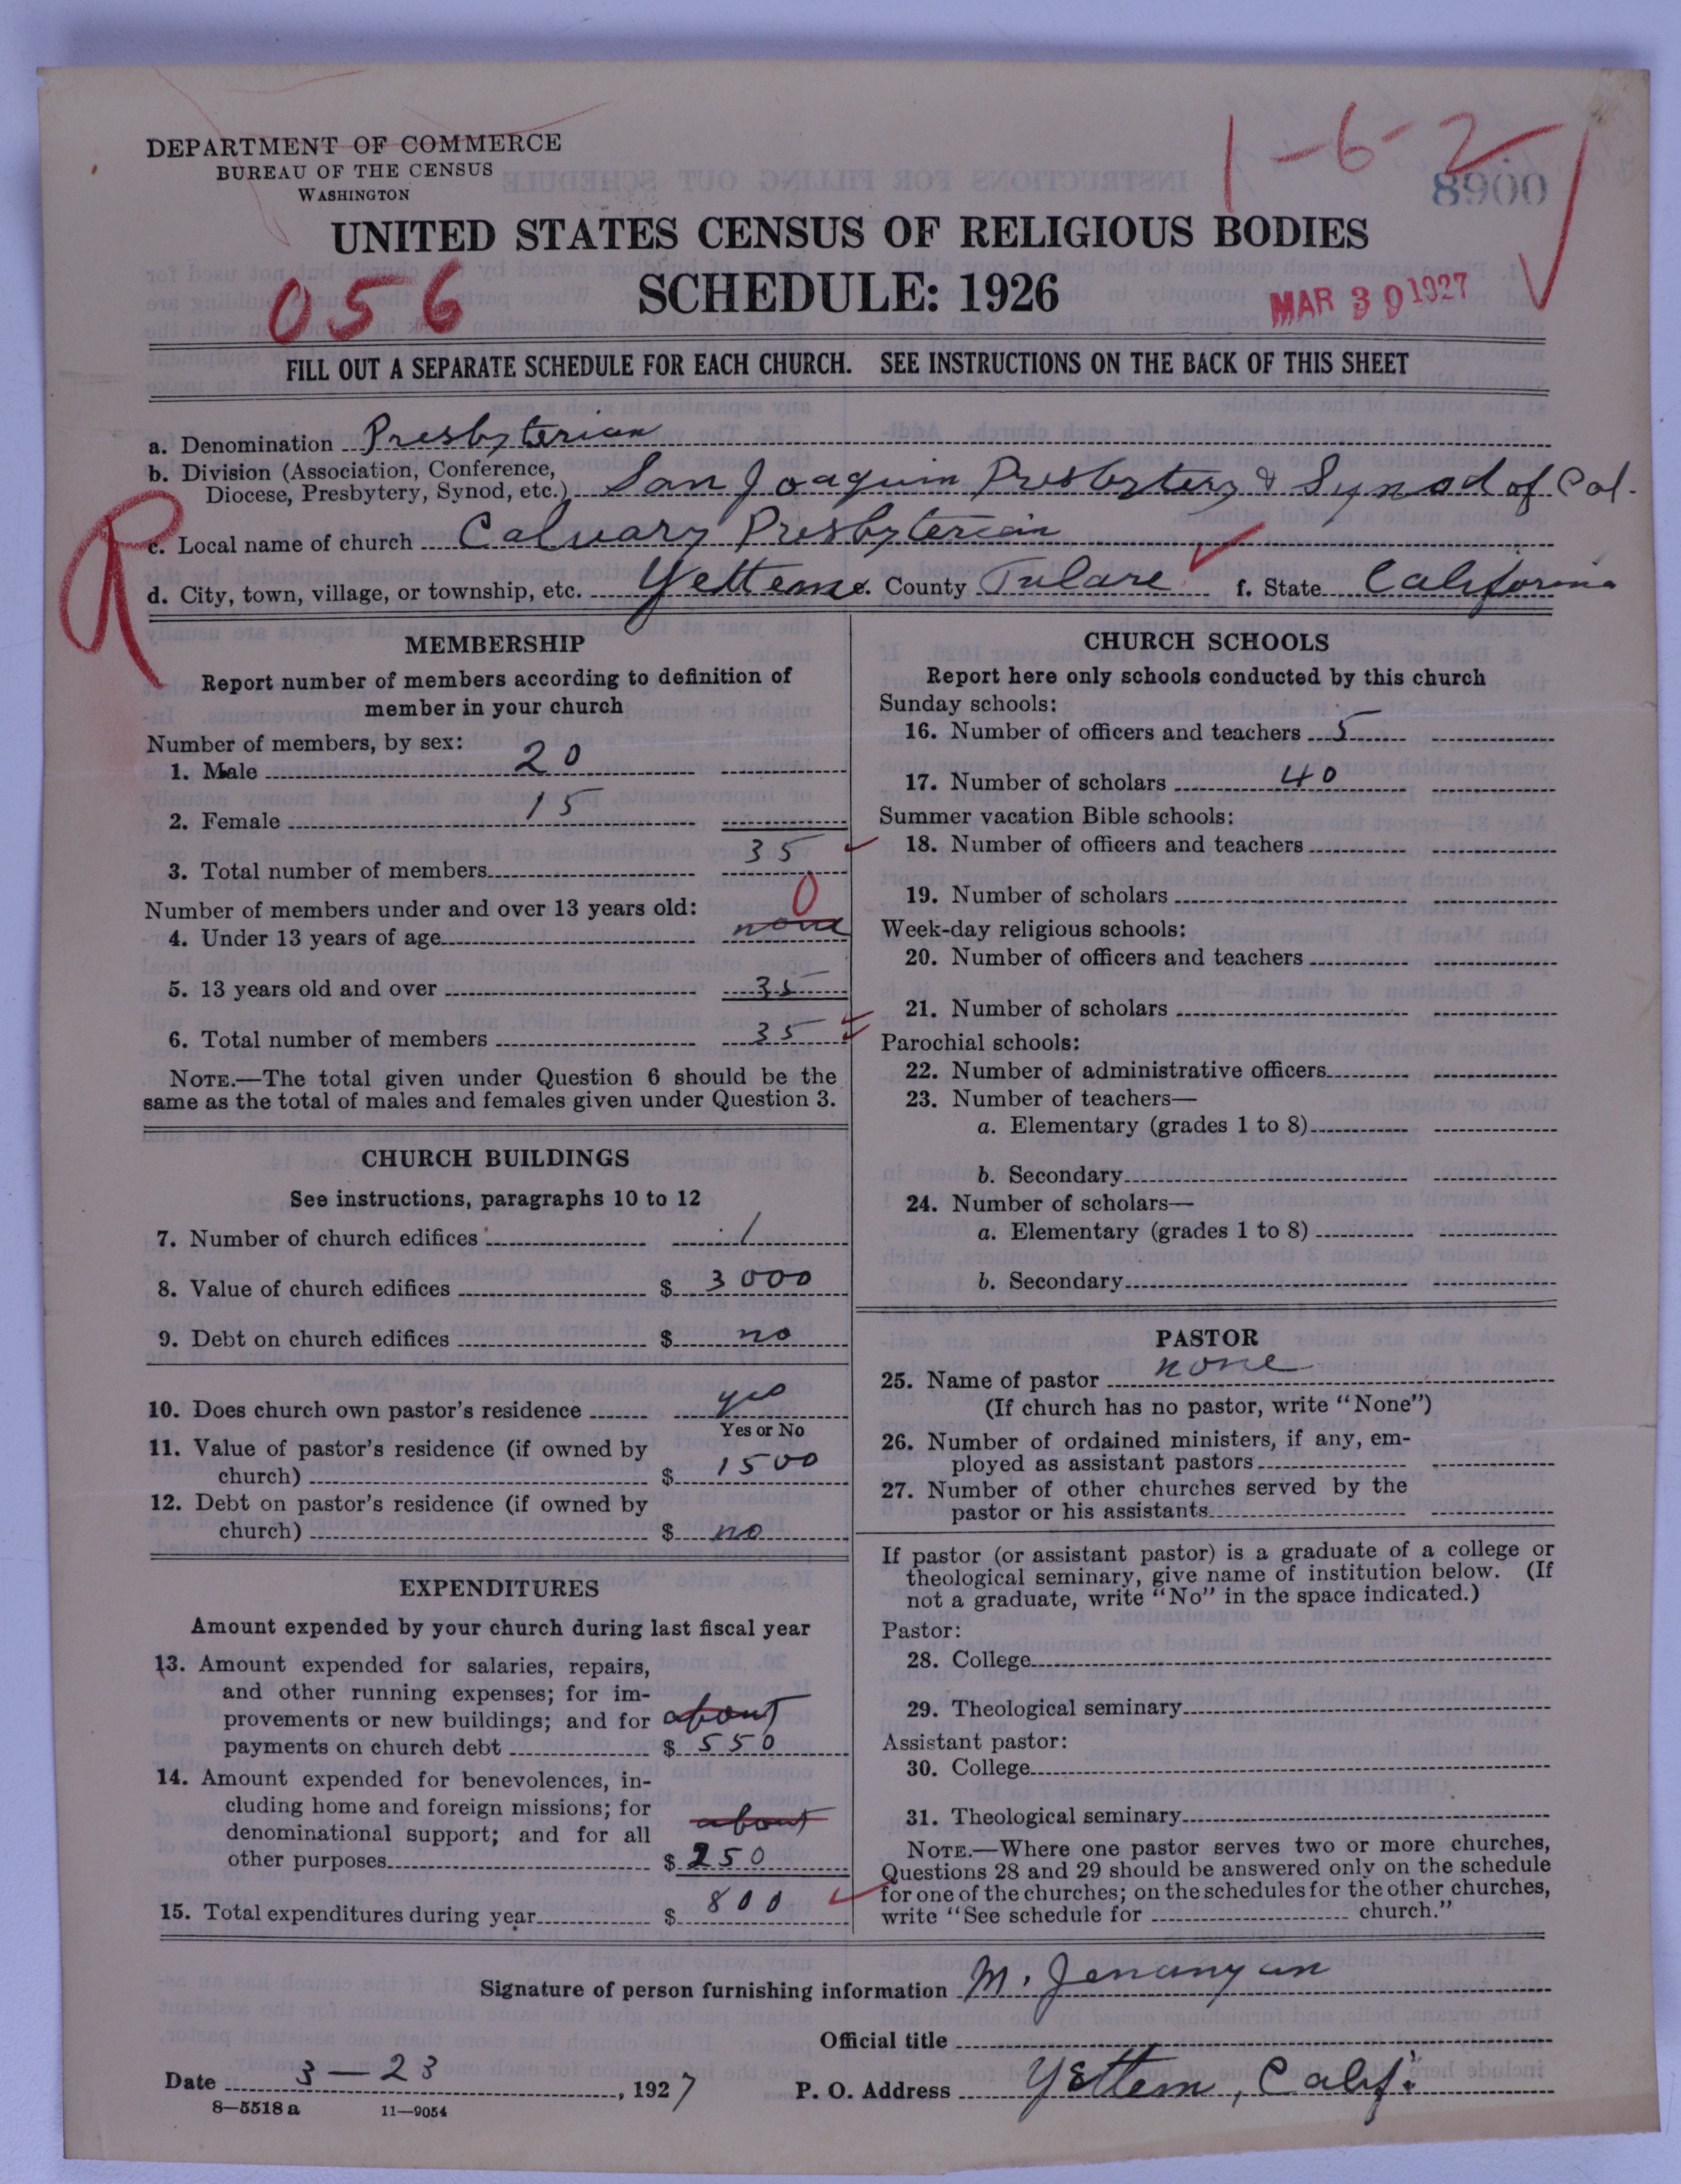 1-6-2
8900
DEPARTMENT OF COMMERCE
BUREAU OF THE CENSUS
WASHINGTON
UNITED STATES CENSUS OF RELIGIOUS BODIES
056
SCHEDULE: 1926
MAR 30 1927
FILL OUT A SEPARATE SCHEDULE FOR EACH CHURCH. SEE INSTRUCTIONS ON THE BACK OF THIS SHEET
a. Denomination Presbyterian
b. Division (Association, Conference,
Diocese, Presbytery, Synod, etc.) San Joaquin Presbytery & Synod of Cal.
R
c. Local name of church Calvary Presbyterian
d. City, town, village, or township, etc. Yettem e. County Tulare f. State California
MEMBERSHIP
Report number of members according to definition of
member in your church
Number of members, by sex:
1. Male 20
2. Female 15
3. Total number of members 35
Number of members under and over 13 years old:
4. Under 13 years of age none 0
5. 13 years old and over 35
6. Total number of members 35
NOTE.—The total given under Question 6 should be the
same as the total of males and females given under Question 3.
CHURCH BUILDINGS
See instructions, paragraphs 10 to 12
7. Number of church edifices 1
8. Value of church edifices $ 3000
9. Debt on church edifices $ no
10. Does church own pastor's residence yes
Yes or No
11. Value of pastor's residence (if owned by
church) $ 1500
12. Debt on pastor's residence (if owned by
church) $ no
EXPENDITURES
Amount expended by your church during last fiscal year
13. Amount expended for salaries, repairs,
and other running expenses; for im-
provements or new buildings; and for about
payments on church debt $ 550
14. Amount expended for benevolences, in-
cluding home and foreign missions; for
denominational support; and for all about
other purposes $ 250
15. Total expenditures during year $ 800
CHURCH SCHOOLS
Report here only schools conducted by this church
Sunday schools:
16. Number of officers and teachers 5
17. Number of scholars 40
Summer vacation Bible schools:
18. Number of officers and teachers
19. Number of scholars
Week-day religious schools:
20. Number of officers and teachers
21. Number of scholars
Parochial schools:
22. Number of administrative officers
23. Number of teachers—
a. Elementary (grades 1 to 8)
b. Secondary
24. Number of scholars—
a. Elementary (grades 1 to 8)
b. Secondary
PASTOR
25. Name of pastor none
(If church has no pastor, write "None")
26. Number of ordained ministers, if any, em-
ployed as assistant pastors
27. Number of other churches served by the
pastor or his assistants
If pastor (or assistant pastor) is a graduate of a college or
theological seminary, give name of institution below. (If
not a graduate, write "No" in the space indicated.)
Pastor:
28. College
29. Theological seminary
Assistant pastor:
30. College
31. Theological seminary
NOTE.—Where one pastor serves two or more churches,
Questions 28 and 29 should be answered only on the schedule
for one of the churches; on the schedules for the other churches,
write "See schedule for church."
Signature of person furnishing information M. Jenanyan
Official title
Date 3-23, 1927 P. O. Address Yettem, Calif.
8—5518 a 11—9054